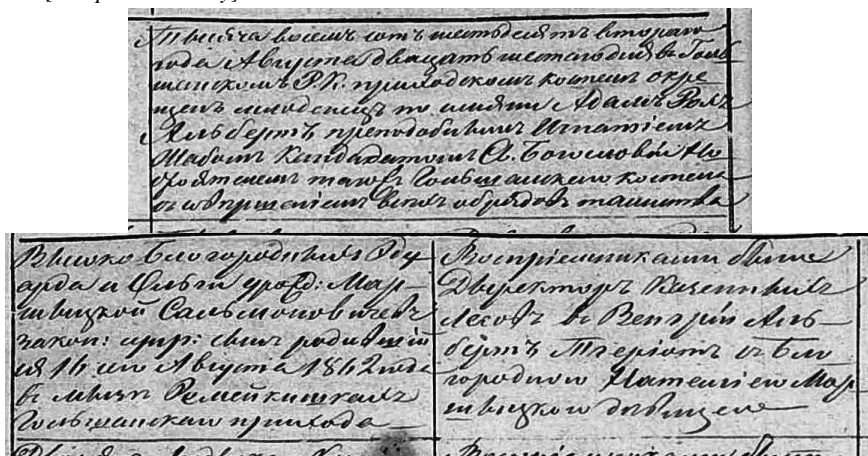 Тысяча восемь сотъ шестьдесятъ втораго
года Августа двадцать шестаго дня въГоль-
шанскомъ Р.К. приходскомъ костелѣ окре-
щенъ младенецъ по имени Адамъ
Альбертъ преподобнымъ Игнатіемъ
Кандидатомъ Св. Богословія На-
стоятелемъ тогожъ Гольшанскаго костела
съ совершеніемъ всѣхъ обрядовъ таинства
Высоко Благородныхъ Эду-
арда и Ольги урожд: Мар-
Сальмоновичевъ
закон: супр: сынъ родившій-
ся 16 сего Августа 1862 года
въ имѣніи Ромейкишкахъ
Гольшанскаго прихода
Воспріемниками были
Директоръ Казенныхъ
Лесовъ въ Венгріи Аль-
бертъ Теріотъ съ Бла-
городною Мар-
дѣвицею